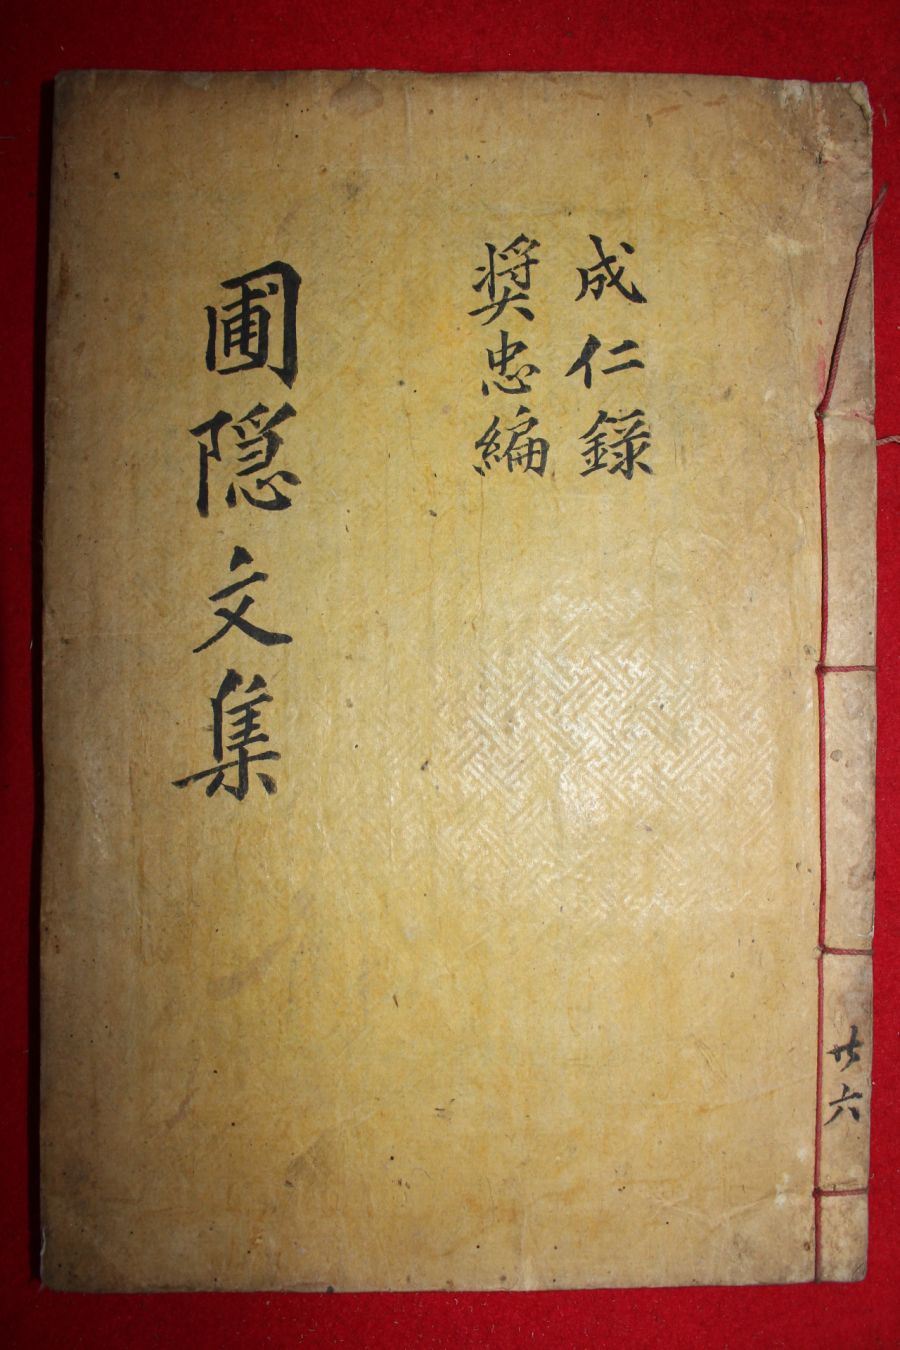 成仁錄
奬忠編
圃隐文集
廿六